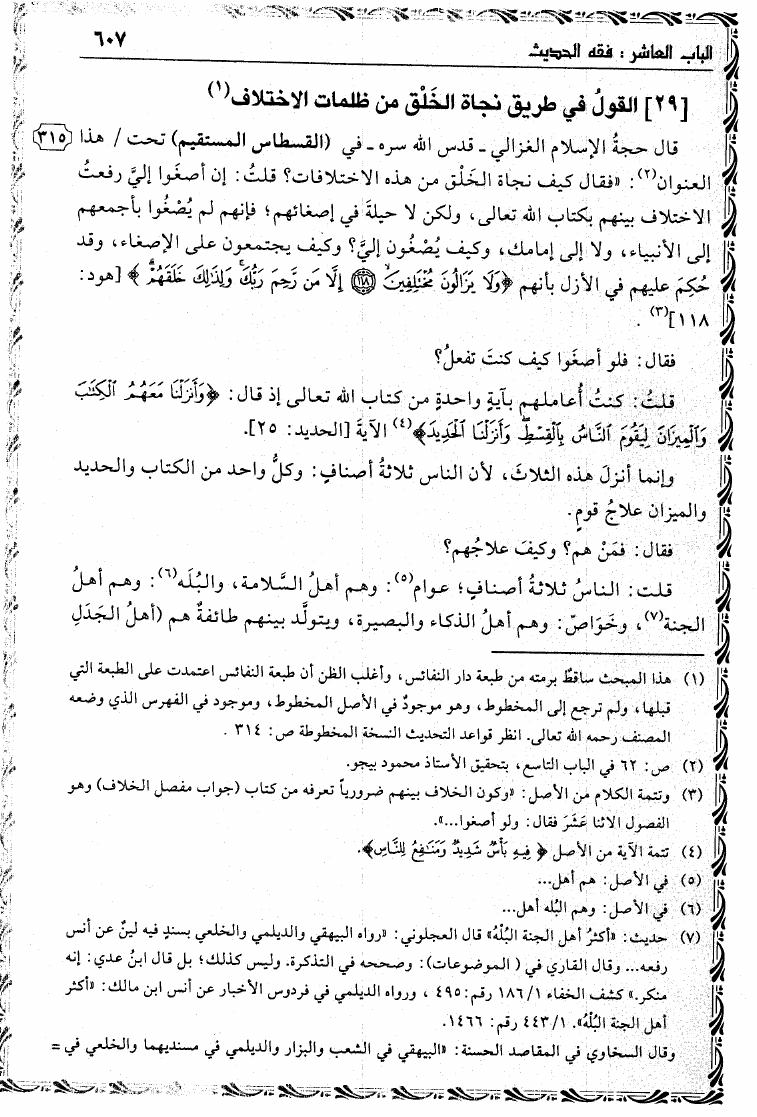 الباب العاشر : فقه الحديث
٦٠٧
[٢٩] القولُ في طريق نجاة الخَلْق من ظلمات الاختلاف(١)
قال حجةُ الإسلام الغزالي ـ قدس الله سره ـ في (القسطاس المستقيم) تحت / هذا
٣١٥
العنوان(٢): «فقال كيف نجاة الخَلْق من هذه الاختلافات؟ قلتُ: إن أصغَوا إليَّ رفعتُ
الاختلاف بينهم بكتاب الله تعالى، ولكن لا حيلةَ في إصغائهم؛ فإنهم لم يُصْغُوا بأجمعهم
إلى الأنبياء، ولا إلى إمامك، وكيف يُصْغُون إليَّ؟ وكيف يجتمعون على الإصغاء، وقد
حُكِمَ عليهم في الأزل بأنهم ﴿وَلَا يَزَالُونَ مُخْتَلِفِينَ ۝١١٨ إِلَّا مَن رَّحِمَ رَبُّكَ وَلِذَٰلِكَ خَلَقَهُمْ﴾ [هود:
١١٨](٣) .
فقال: فلو أصغَوا كيف كنتَ تفعلُ؟
قلتُ: كنتُ أُعاملهم بآيةٍ واحدةٍ من كتاب الله تعالى إذ قال: ﴿وَأَنزَلْنَا مَعَهُمُ الْكِتَٰبَ
وَالْمِيزَانَ لِيَقُومَ النَّاسُ بِالْقِسْطِ وَأَنزَلْنَا الْحَدِيدَ﴾(٤) الآيةَ [الحديد: ٢٥].
وإنما أنزلَ هذه الثلاثَ، لأن الناس ثلاثةُ أصنافٍ: وكلُّ واحد من الكتاب والحديد
والميزان علاجُ قومٍ.
فقال: فمَنْ هم؟ وكيفَ علاجُهم؟
قلت: الناسُ ثلاثةُ أصنافٍ؛ عوام(٥): وهم أهلُ السَّلامة، والبُلَه(٦): وهم أهلُ
الجنة(٧)، وخَوَاصّ: وهم أهلُ الذكاء والبصيرة، ويتولَّد بينهم طائفةٌ هم (أهلُ الجَدَلِ
(١) هذا المبحث ساقطٌ برمته من طبعة دار النفائس، وأغلب الظن أن طبعة النفائس اعتمدت على الطبعة التي
قبلها، ولم ترجع إلى المخطوط، وهو موجودٌ في الأصل المخطوط، وموجود في الفهرس الذي وضعه
المصنف رحمه الله تعالى. انظر قواعد التحديث النسخة المخطوطة ص: ٣١٤ .
(٢) ص: ٦٢ في الباب التاسع، بتحقيق الأستاذ محمود بيجو.
(٣) وتتمة الكلام من الأصل: «وكون الخلاف بينهم ضرورياً تعرفه من كتاب (جواب مفصل الخلاف) وهو
الفصول الاثنا عَشَرَ فقال: ولو أصغوا...».
(٤) تتمة الآية من الأصل ﴿فِيهِ بَأْسٌ شَدِيدٌ وَمَنَٰفِعُ لِلنَّاسِ﴾.
(٥) في الأصل: هم أهل...
(٦) في الأصل: وهم البُله أهل...
(٧) حديث: «أكثرُ أهل الجنة البُلْهُ» قال العجلوني: «رواه البيهقي والديلمي والخلعي بسندٍ فيه لينٌ عن أنس
رفعه... وقال القاري في ( الموضوعات): وصححه في التذكرة. وليس كذلك؛ بل قال ابنُ عدي: إنه
منكر.» كشف الخفاء ١٨٦/١ رقم: ٤٩٥ ، ورواه الديلمي في فردوس الأخبار عن أنس ابن مالك: «أكثر
أهل الجنة البُلْهُ». ٤٤٣/١ رقم: ١٤٦٦.
وقال السخاوي في المقاصد الحسنة: «البيهقي في الشعب والبزار والديلمي في مسنديهما والخلعي في =